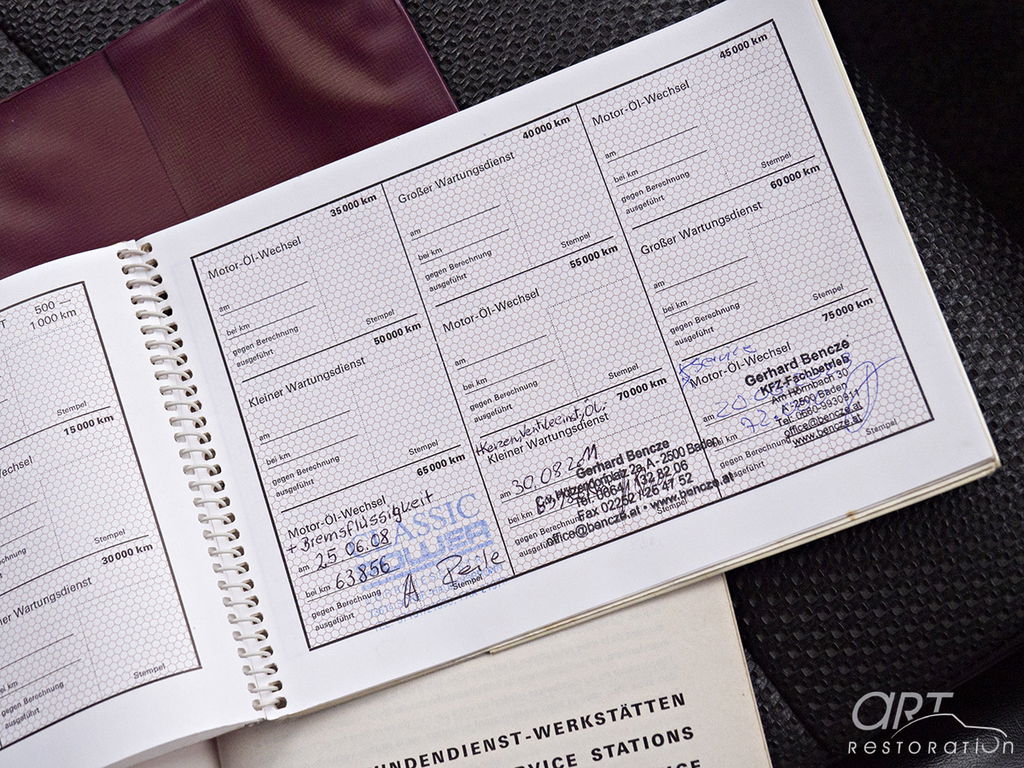 500 –
1 000 km
Stempel
15 000 km
Stempel
30 000 km
Wartungsdienst
am
bei km
gegen Berechnung
ausgeführt
Stempel
35 000 km
Motor-Öl-Wechsel
am
bei km
gegen Berechnung
ausgeführt
Stempel
40 000 km
Großer Wartungsdienst
am
bei km
gegen Berechnung
ausgeführt
Stempel
45 000 km
Motor-Öl-Wechsel
am
bei km
gegen Berechnung
ausgeführt
Stempel
50 000 km
Kleiner Wartungsdienst
am
bei km
gegen Berechnung
ausgeführt
Stempel
55 000 km
Motor-Öl-Wechsel
am
bei km
gegen Berechnung
ausgeführt
Stempel
60 000 km
Großer Wartungsdienst
am
bei km
gegen Berechnung
ausgeführt
Stempel
65 000 km
Motor-Öl-Wechsel
+ Bremsflüssigkeit
am 25.06.08
bei km 63856
gegen Berechnung
ausgeführt
Stempel
CLASSIC
70 000 km
Kleiner Wartungsdienst
am 30.08.2011
bei km
gegen Berechnung
ausgeführt
Stempel
Gerhard Bencze
2a, A-2500 Baden
Fax 02252 / 26 47 52
office@bencze.at - www.bencze.at
75 000 km
Service
Motor-Öl-Wechsel
am
bei km
gegen Berechnung
ausgeführt
Stempel
Gerhard Bencze
KFZ-Fachbetrieb
Am Hörmbach 30
A-2500 Baden
office@bencze.at
www.bencze.at
NDENDIENST-WERKSTÄTTEN
VICE STATIONS
ART
RESTORATION